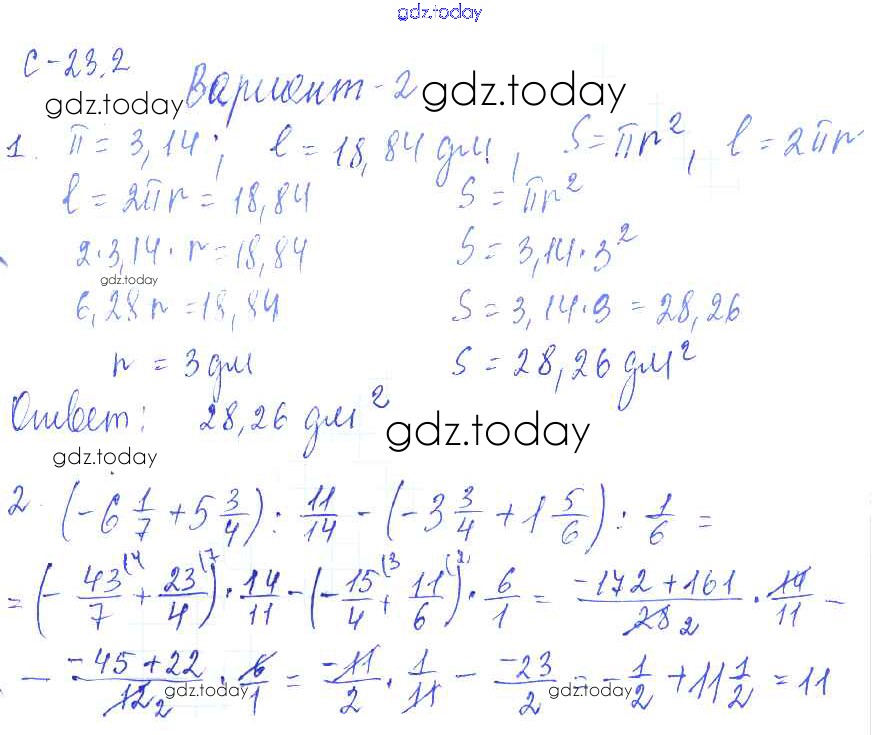 gdz.today
С-23.2
gdz.today Вариант-2 gdz.today
1. π = 3,14; l = 18,84 дм, S = πr², l = 2πr
l = 2πr = 18,84 S = πr²
2·3,14·r = 18,84 S = 3,14·3²
gdz.today
6,28r = 18,84 S = 3,14·9 = 28,26
r = 3 дм S = 28,26 дм²
Ответ: 28,26 дм² gdz.today
gdz.today
2. (-6 1/7 + 5 3/4) : 11/14 - (-3 3/4 + 1 5/6) : 1/6 =
= (- 43/7 (4 + 23/4 (7) · 14/11 - (- 15/4 (3 + 11/6 (2) · 6/1 = -172+161/28 2 · 14/11 -
- -45+22/12 2 · 6/1 = -11/2 · 1/11 - -23/2 = - 1/2 + 11 1/2 = 11
gdz.today gdz.today gdz.today